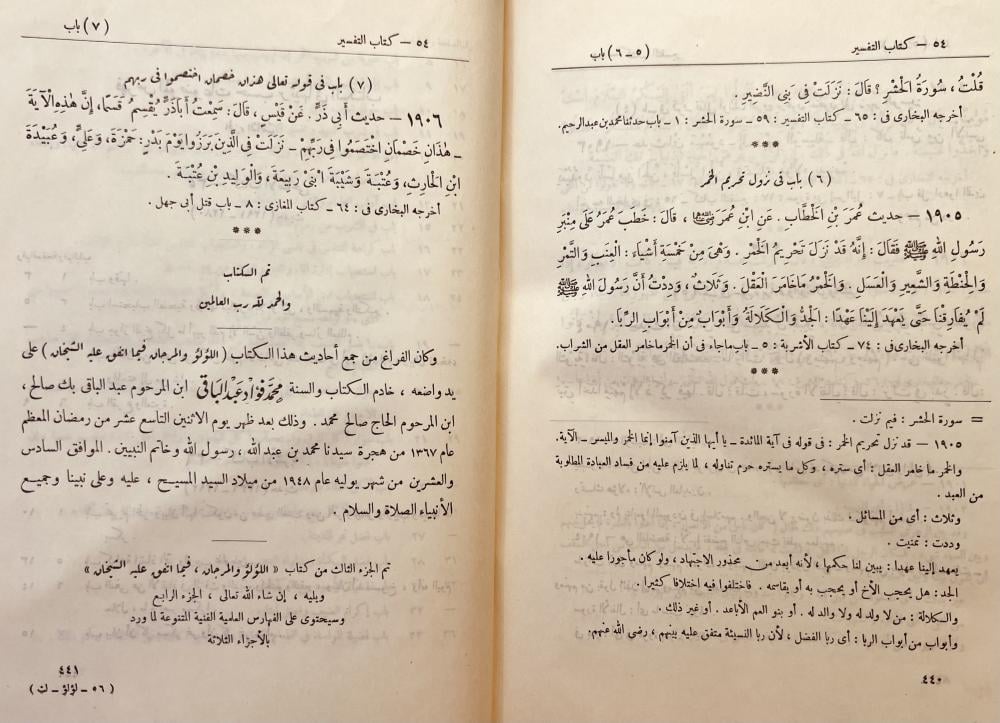 ٥٤ — كتاب التفسير
(٥ ـ ٦) باب
قُلْتُ ، سُورَةُ الْحَشْرِ ؟ قَالَ : نَزَلَتْ فِى بَنِى النَّضِيرِ .
أخرجه البخارى فى : ٦٥ ـ كتاب التفسير : ٥٩ ـ سورة الحشر : ١ ـ باب حدثنا محمد بن عبد الرحيم.
***
(٦) باب فى نزول تحريم الخمر
١٩٠٥ — حديث عُمَرَ بْنِ الْخَطَّابِ . عَنِ ابْنِ عُمَرَ رضي الله عنهما ، قَالَ : خَطَبَ عُمَرُ عَلَى مِنْبَرِ
رَسُولِ اللهِ ﷺ فَقَالَ : إِنَّهُ قَدْ نَزَلَ تَحْرِيمُ الْخَمْرِ . وَهِىَ مِنْ خَمْسَةِ أَشْيَاءَ : الْعِنَبِ وَالتَّمْرِ
وَالْحِنْطَةِ وَالشَّعِيرِ وَالْعَسَلِ . وَالْخَمْرُ مَا خَامَرَ الْعَقْلَ . وَثَلَاثٌ ، وَدِدْتُ أَنَّ رَسُولَ اللهِ ﷺ
لَمْ يُفَارِقْنَا حَتَّى يَعْهَدَ إِلَيْنَا عَهْدًا : الْجَدُّ وَالْكَلَالَةُ وَأَبْوَابٌ مِنْ أَبْوَابِ الرِّبَا .
أخرجه البخارى فى : ٧٤ ـ كتاب الأشربة : ٥ ـ باب ما جاء فى أن الخمر ما خامر العقل من الشراب.
***
= سورة الحشر : فيم نزلت .
١٩٠٥ — قد نزل تحريم الخمر : فى قوله فى آية المائدة ـ يا أيها الذين آمنوا إنما الخمر والميسر ـ الآية.
والخمر ما خامر العقل : أى ستره ، وكل ما يستره حرم تناوله ، لما يلزم عليه من فساد العبادة المطلوبة
من العبد .
وثلاث : أى من المسائل .
وددت : تمنيت .
يعهد إلينا عهدا : يبين لنا حكمها ، لأنه أبعد من محذور الاجتهاد ، ولو كان مأجورا عليه .
الجد : هل يحجب الأخ أو يحجب به أو يقاسمه . فاختلفوا فيه اختلافا كثيرا .
والكلالة : من لا ولد له ولا والد له . أو بنو العم الأباعد . أو غير ذلك .
وأبواب من أبواب الربا : أى ربا الفضل ، لأن ربا النسيئة متفق عليه بينهم ، رضى الله عنهم.
٤٤٠
٥٤ — كتاب التفسير
(٧) باب
(٧) باب فى قوله تعالى هذان خصمان اختصموا فى ربهم
١٩٠٦ — حديث أَبِى ذَرٍّ . عَنْ قَيْسٍ ، قَالَ : سَمِعْتُ أَبَا ذَرٍّ يُقْسِمُ قَسَمًا ، إِنَّ هٰذِهِ الْآيَةَ
ـ هٰذَانِ خَصْمَانِ اخْتَصَمُوا فِى رَبِّهِمْ ـ نَزَلَتْ فِى الَّذِينَ بَرَزُوا يَوْمَ بَدْرٍ : حَمْزَةَ ، وَعَلِىٍّ ، وَعُبَيْدَةَ
ابْنِ الْحَارِثِ ، وَعُتْبَةَ وَشَيْبَةَ ابْنَىْ رَبِيعَةَ ، وَالْوَلِيدِ بْنِ عُتْبَةَ .
أخرجه البخارى فى : ٦٤ ـ كتاب المغازى : ٨ ـ باب قتل أبى جهل .
***
تم الكتاب
والحمد لله رب العالمين
وكان الفراغ من جمع أحاديث هذا الكتاب ( اللؤلؤ والمرجان فيما اتفق عليه الشيخان ) على
يد واضعه ، خادم الكتاب والسنة محمد فؤاد عبد الباقى ابن المرحوم عبد الباقى بك صالح ،
ابن المرحوم الحاج صالح محمد . وذلك بعد ظهر يوم الاثنين التاسع عشر من رمضان المعظم
عام ١٣٦٧ من هجرة سيدنا محمد بن عبد الله ، رسول الله وخاتم النبيين . الموافق السادس
والعشرين من شهر يوليه عام ١٩٤٨ من ميلاد السيد المسيح ، عليه وعلى نبينا وجميع
الأنبياء الصلاة والسلام .
تم الجزء الثالث من كتاب « اللؤلؤ والمرجان ، فيما اتفق عليه الشيخان »
ويليه ، إن شاء الله تعالى ، الجزء الرابع
وسيحتوى على الفهارس العلمية الفنية المتنوعة لما ورد
بالأجزاء الثلاثة
٤٤١
( ٥٦ ـ لؤلؤ ـ ك )